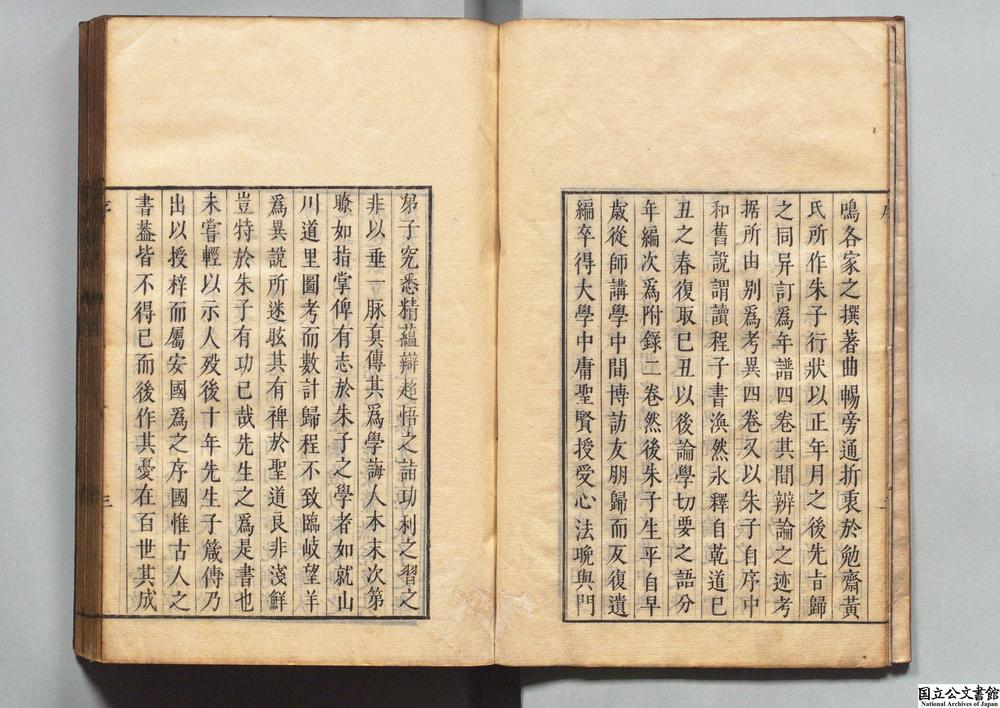 鳴各家之撰著曲暢旁通折衷於勉齋黃
氏所作朱子行狀以正年月之後先旨歸
之同异訂爲年譜四卷其間辨論之迹考
据所由别爲考異四卷又以朱子自序中
和舊說謂讀程子書渙然氷釋自乾道己
丑之春復取己丑以後論學切要之語分
年編次爲附錄二卷然後朱子生平自早
歲從師講學中間博訪友朋歸而反復遺
編卒得大學中庸聖賢授受心法晩與門
弟子究悉精蘊辯超悟之詰功利之習之
非以垂一脉眞傳其爲學誨人本末次第
瞭如指掌俾有志於朱子之學者如就山
川道里圖考而數計歸程不致臨岐望羊
爲異說所迷眩其有裨於聖道良非淺鮮
豈特於朱子有功已哉先生之爲是書也
未嘗輕以示人殁後十年先生子箴傳乃
出以授梓而屬安國爲之序國惟古人之
書葢皆不得已而後作其憂在百世其成
序
三
国立公文書館
National Archives of Japan